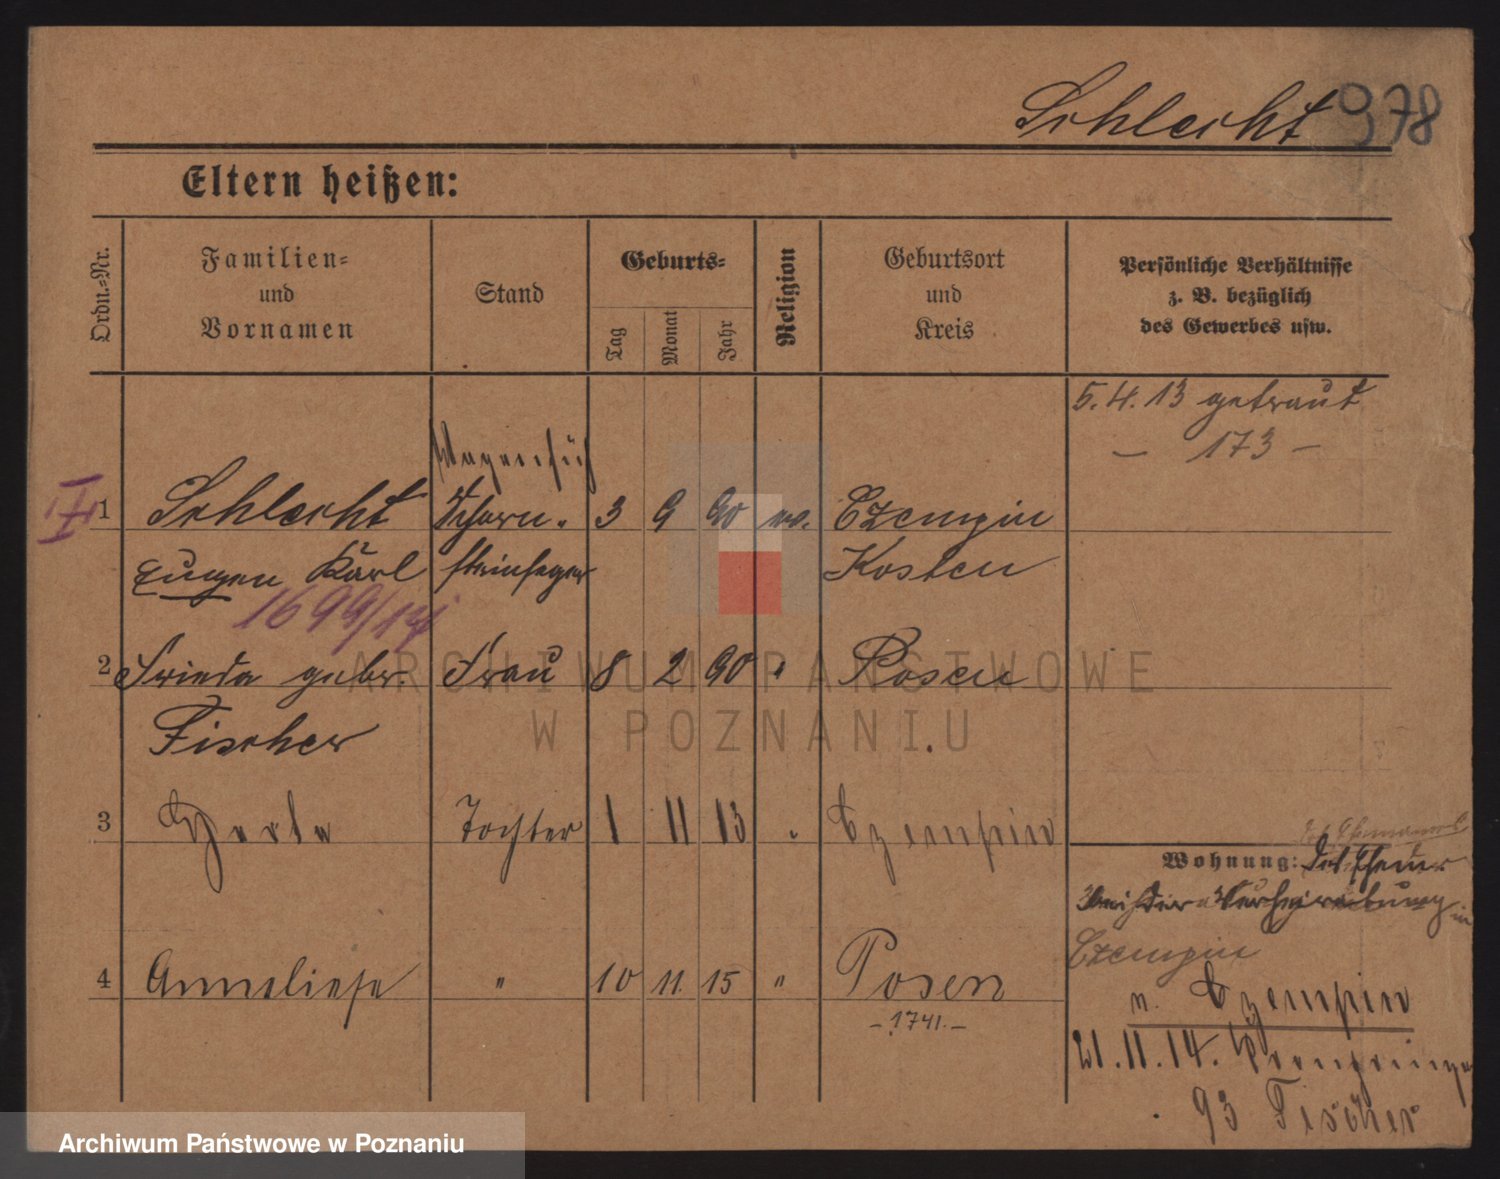 Schlecht 978
Eltern heißen:
Ordn.-Nr.
Familien-
und
Vornamen
Stand
Geburts-
Tag
Monat
Jahr
Religion
Geburtsort
und
Kreis
Persönliche Verhältnisse
z. B. bezüglich
des Gewerbes usw.
5. 4. 13 getraut
— 173 —
1 Schlecht Schorn- 3 9 90 ev. Czempin
Eugen Karl steinfeger Kosten
1699/14
2 Frieda geb. Frau 8 2 90 " Posen
Fischer
3 Herta Tochter 1 11 13 " Czempin
Wohnung:
in
Czempin
4 Anneliese " 10 11. 15 " Posen
— 1741. —
n. Czempin
21. 11. 14.
93 Fischer
ARCHIWUM PAŃSTWOWE
W POZNANIU
Archiwum Państwowe w Poznaniu